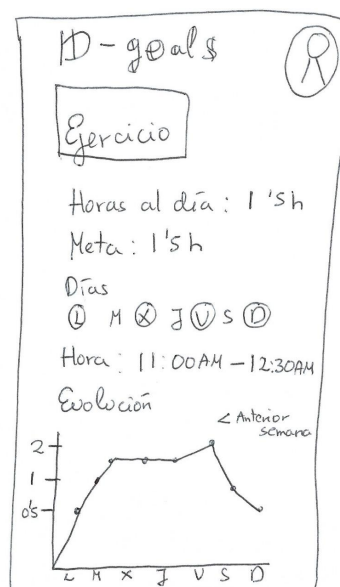 ID-goals
Ejercicio
Horas al día: 1'5h
Meta: 1'5h
Días
L M X J V S D
Hora: 11:00AM-12:30AM
Evolución
< Anterior
semana
2
1
0'5
L M X J V S D